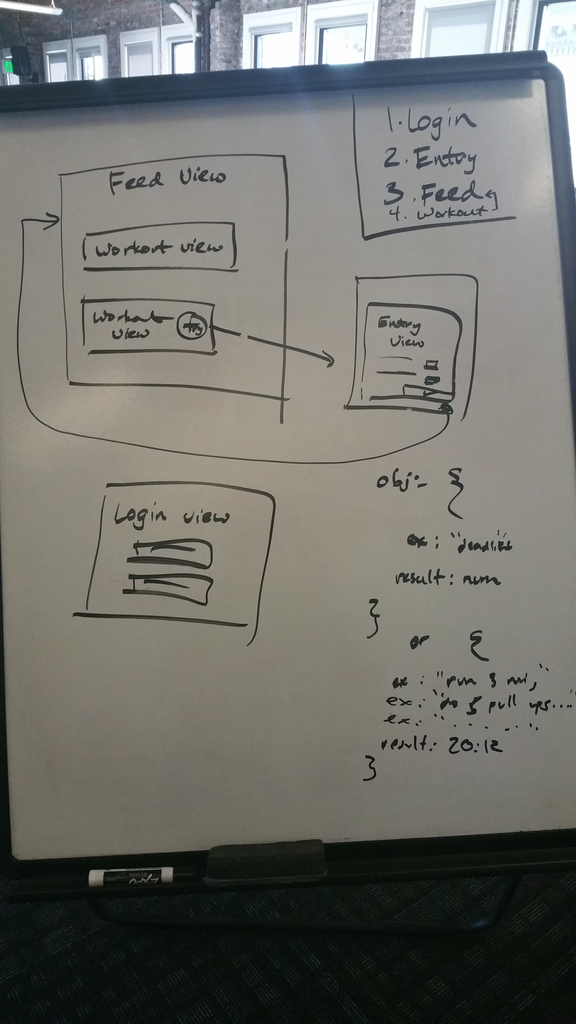 1. Login
2. Entry
3. Feed
4. Workout
Feed View
Workout view
Workout
view
Entry
View
Login view
obj:- {
ex: "deadlift"
result: num
}
or {
ex: "run 3 mi,"
ex: "do 5 pull ups..."
ex: "......."
result: 20:12
}
EXPO